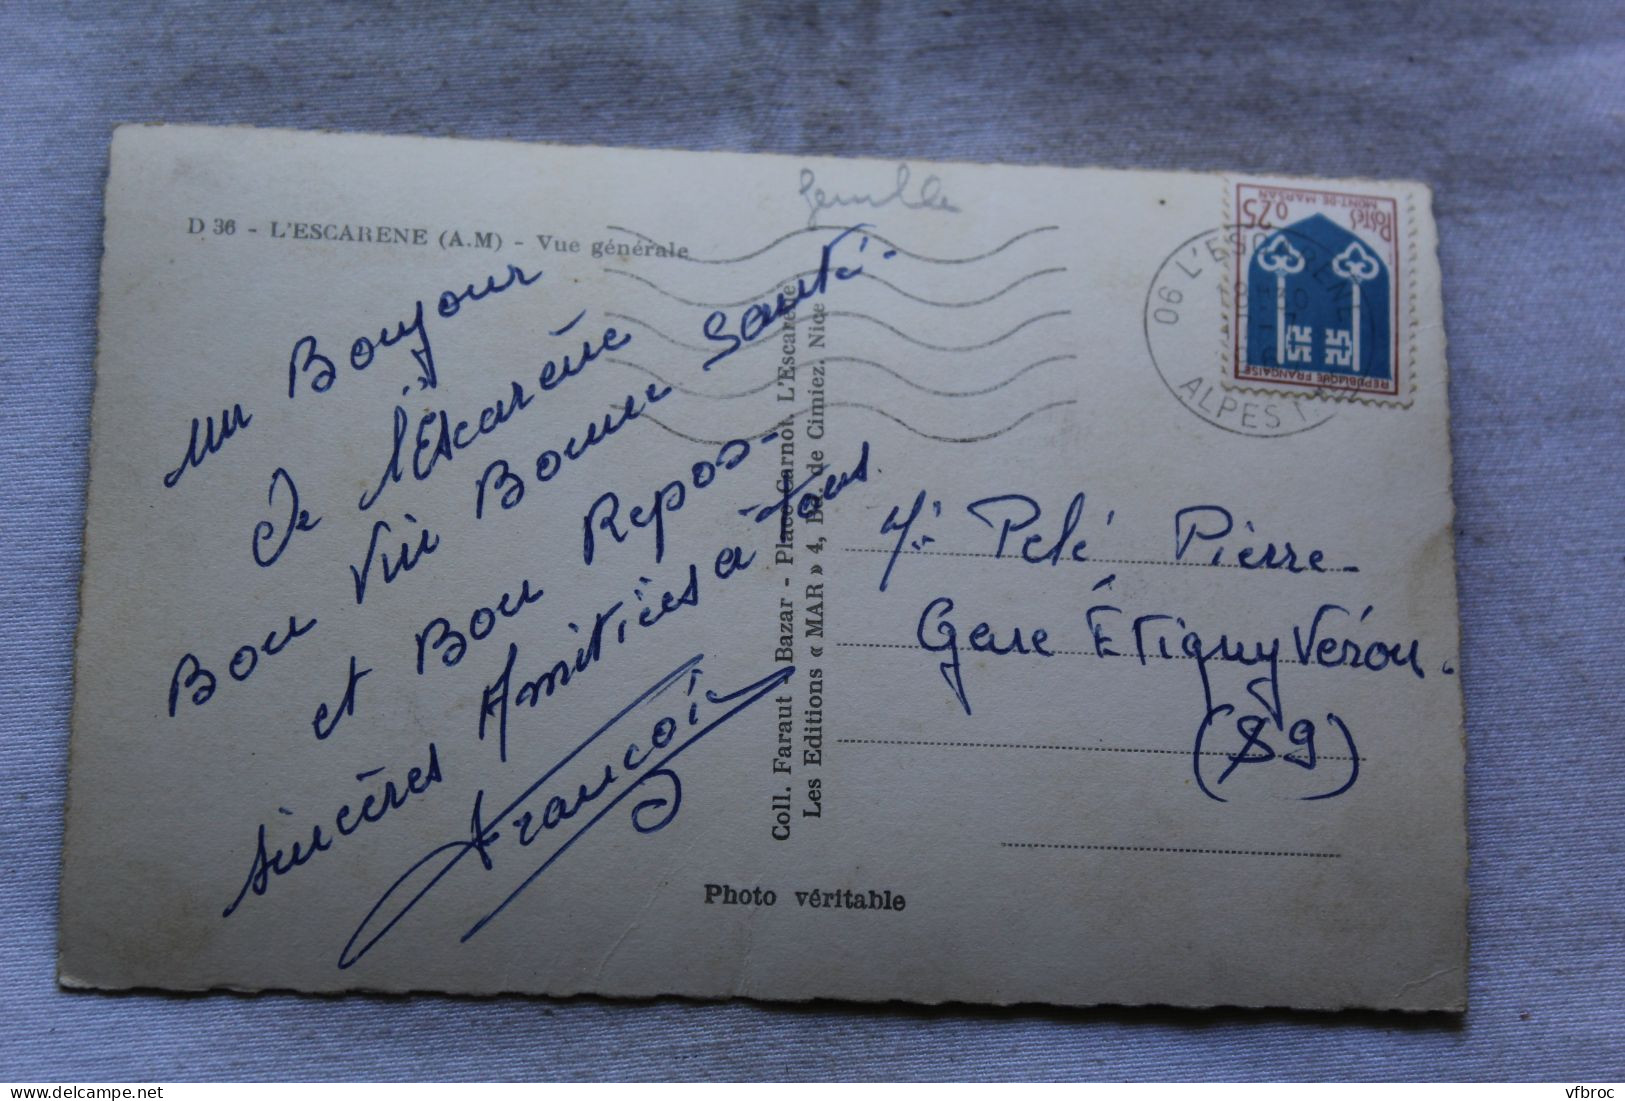 D 36 - L'ESCARENE (A.M) - Vue générale
un Bonjour
de l'Escarène
Bon Vin Bonne Santé -
et Bon Repos -
sincères Amitiés à tous.
François
Coll. Faraut - Bazar - Place Carnot. L'Escarène
Les Editions « MAR » 4, Bd. de Cimiez. Nice
Photo véritable
0,25
Postes
MONT-DE-MARSAN
REPUBLIQUE FRANÇAISE
06 L'ESCARENE
ALPES
Mr Pelé Pierre -
Gare Étigny Véron.
(89)
vfbroc